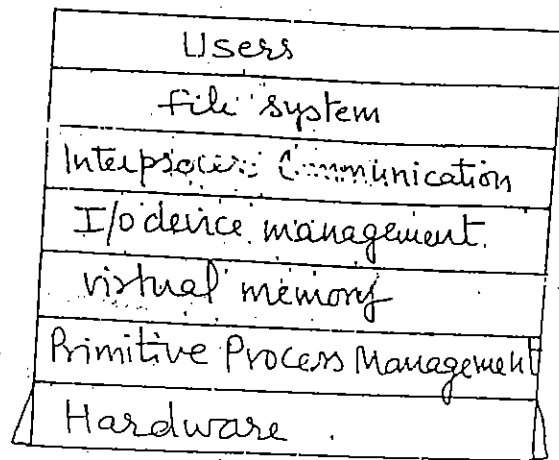 Users
file system
Interprocess Communication
I/o device management.
virtual memory
Primitive Process Management
Hardware .